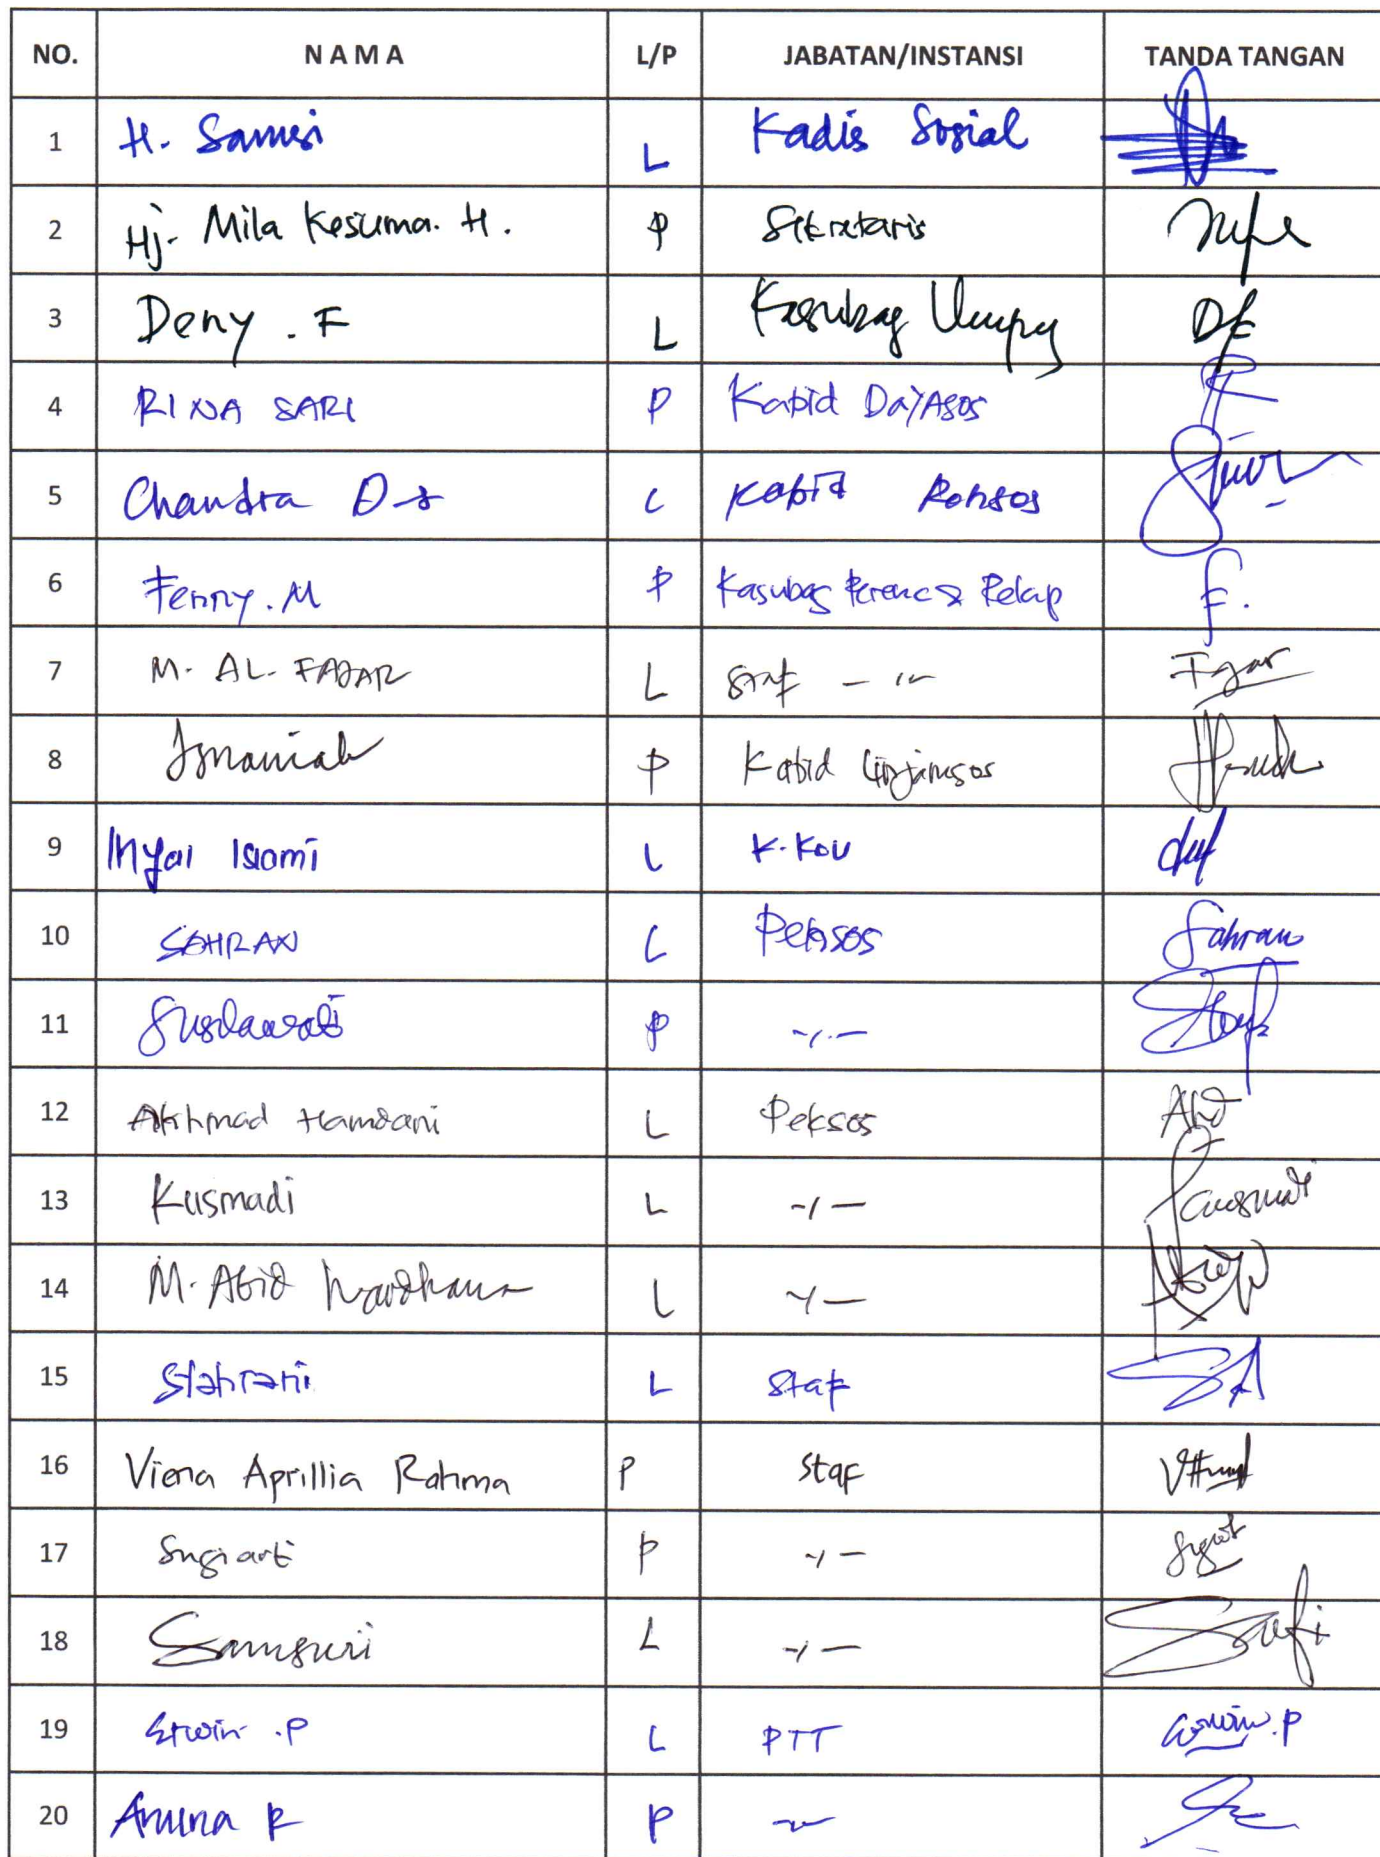 NO. N A M A L/P JABATAN/INSTANSI TANDA TANGAN
1 H. Samsi L Kadis Sosial
2 Hj. Mila Kesuma. H. P Sekretaris
3 Deny . F L Kasubag Umpeg DF
4 RINA SARI P Kabid DayAsos
5 Chandra D L Kabid Rehsos
6 Fenny. M P Kasubag Perenc & Pelap F.
7 M. AL. FAJAR L Staf - " - Fajar
8 Ismaniah P Kabid Linjamsos
9 Isromi L K.
10 SAHRAN L Peksos Sahran
11 Susilawati P -"-
12 Akhmad Hamdani L Peksos
13 Kusmadi L -"- Kusmadi
14 M. Abid Wardhana L -"-
15 Siahrani L Staf SA
16 Viena Aprillia Rahma P Staf
17 Sugiarti P -"-
18 Samsuri L -"-
19 Erwin .P L PTT Erwin.P
20 Amina R P -"-